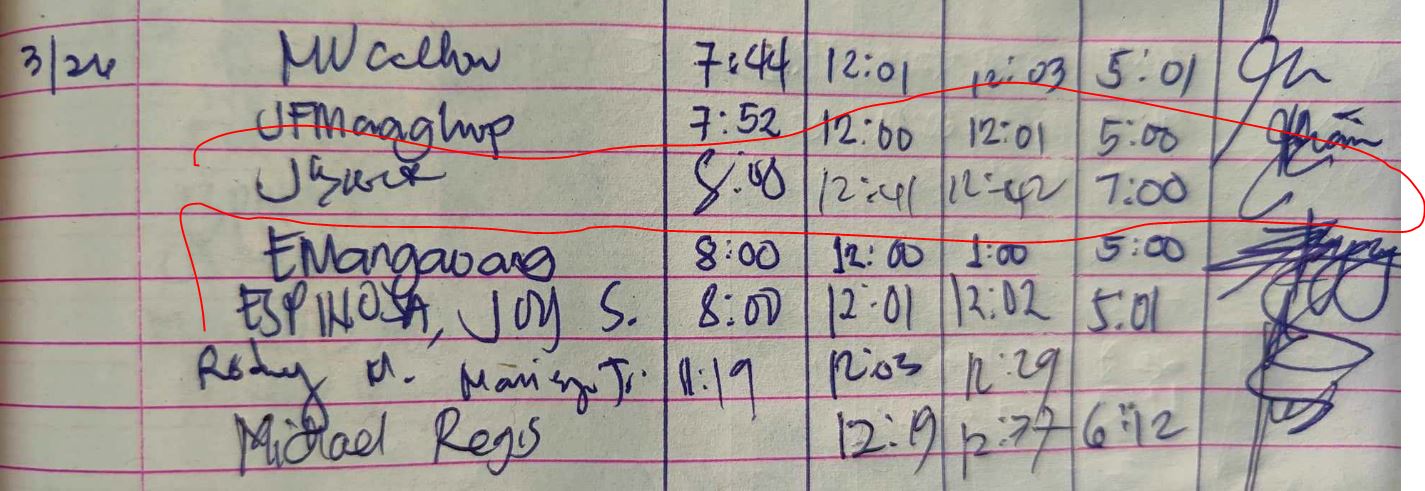 3/24 7:44 12:01 12:03 5:01
JFMaaghop 7:52 12:00 12:01 5:00
8:00 12:41 12:42 7:00
EMangavang 8:00 12:00 1:00 5:00
ESPINOSA, JOY S. 8:00 12:01 12:02 5:01
Rody M. Jr. 11:19 12:03 12:29
Michael Regis 12:19 6:12